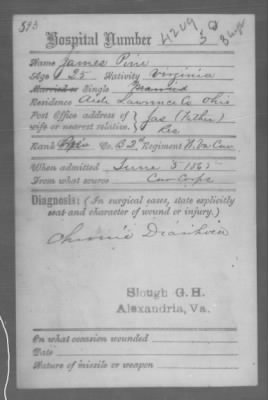 593
Hospital Number 4209
Name James Pine
Age 25 Nativity Virginia
Married or Single
Residence Lawrence Co Ohio
Post Office address of Jas (Father)
wife or nearest relative. Res
Rank Co. B 2" Regiment W. Va Cav.
When admitted June 5 1865
From what source Cav Corps
Diagnosis: (In surgical cases, state explicitly
seat and character of wound or injury.)
Chronic Diarrhoea
Slough G. H.
Alexandria, Va.
On what occasion wounded
Date
Nature of missile or weapon